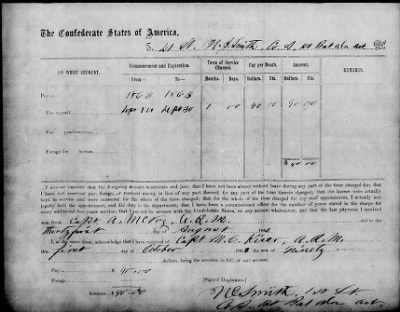 The Confederate States of America,
To 1st Lt. N. C. Smith, Co. A, 1st Bat Ala Art Dr.
ON WHAT ACCOUNT. Commencement and Expiration. Term of Service Charged. Pay per Month. Amount. REMARKS.
From— To— Months. Days. Dolls. Cts. Dolls. Cts.
Pay— 1863 1863
For myself, Sept 1st Sept 30 1 00 90 00 90 00
For years' service,
Forage for horses
$ 90 00
I HEREBY CERTIFY that the foregoing account is accurate and just; that I have not been absent without leave during any part of the time charged for; that
I have not received pay, forage, or received money in lieu of any part thereof, for any part of the time therein charged; that the horses were actually
kept in service and were mustered for the whole of the time charged; that for the whole of the time charged for my staff appointment, I actually and
legally held the appointment, and did duty in the department; that I have been a commissioned officer for the number of years stated in the charge for
every additional five years' service; that I am not in arrears with the Confederate States, on any account whatsoever; and that the last payment I received
was from Capt. A. McVoy, A.Q.M.
Thirty first day of August 1863
I, at the same time, acknowledge that I have received of Capt. A.Q.M.
this first day of October Ninety
Dollars, being the amount, in full, of said account.
Pay— $ 90.00
Forage—
Amount, $ 90.00
[Signed Duplicates.]
N C Smith 1st Lt.
Co. A 1st Bat Ala Art.